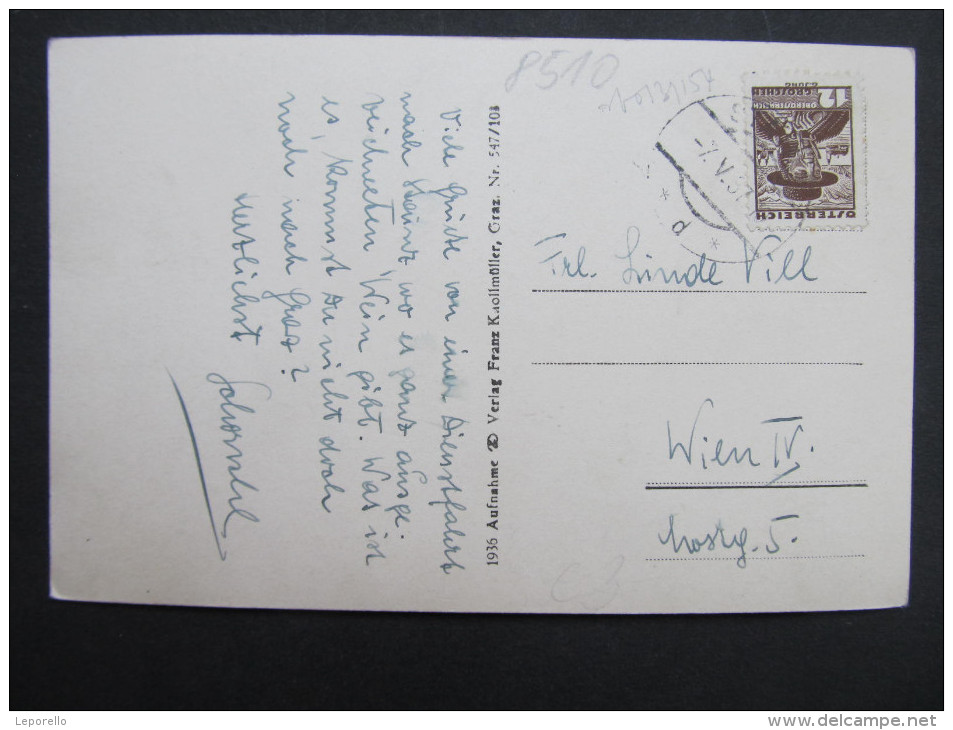 8510
Viele Grüße von einer Dienstfahrt
nach Stainz wo es ganz ausge-
zeichneten Wein gibt. Was ist
es, kommst Du nicht doch
noch nach Graz?
Herzlichst
1936 Aufnahme Verlag Franz Knollmüller, Graz. Nr. 547/103
12
GROSCHEN
OBERÖSTERREICH
ÖSTERREICH
-7.V.37
Frl. Linde Vill
Wien IV.
Mostg. 5.
Leporello
delcampe.net